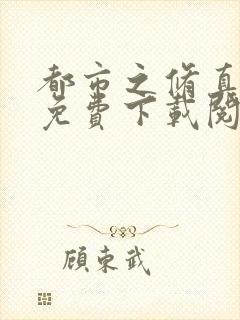 都市之脩真
免費下載閱
顧東武